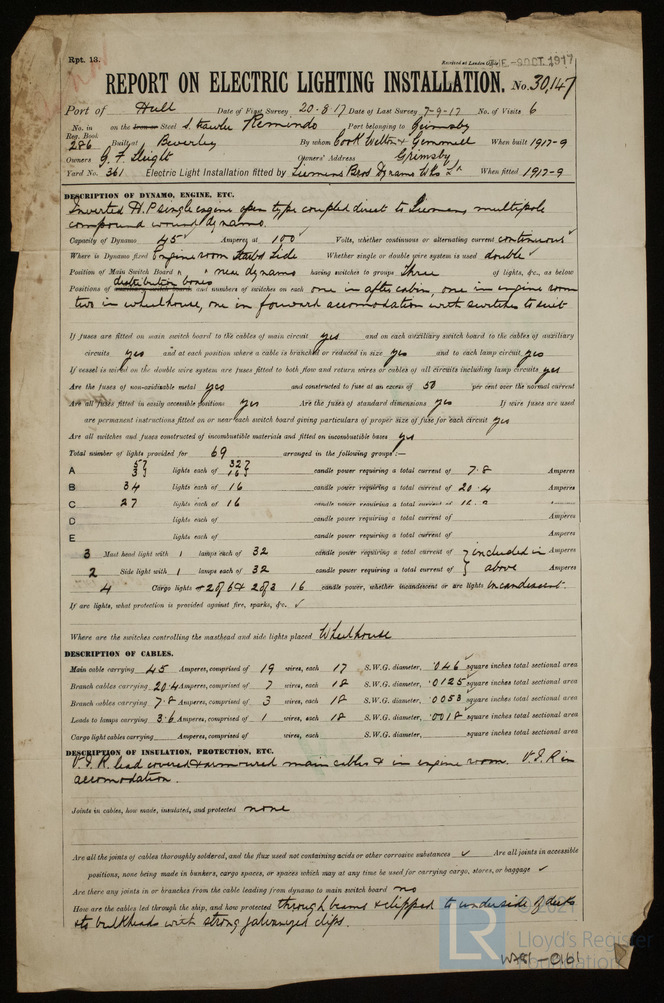 Rpt. 13.
Received at London Office
9 OCT. 1917
REPORT ON ELECTRIC LIGHTING INSTALLATION. No. 30,147
Port of Hull Date of First Survey 20-8-17 Date of Last Survey 7-9-17 No. of Visits 6
No. in Reg. Book 286 on the Iron or Steel S. Trawler Remindo Port belonging to Grimsby
Built at Beverley By whom Cook Welton & Gemmell When built 1917-9
Owners G. F. Sleight Owners' Address Grimsby
Yard No. 361 Electric Light Installation fitted by Siemens Bros Dynamo Wks Ld When fitted 1917-9
DESCRIPTION OF DYNAMO, ENGINE, ETC.
Inverted H.P single engine open type coupled direct to Siemens multipole
compound wound dynamo
Capacity of Dynamo 45 Amperes at 100 Volts, whether continuous or alternating current continuous
Where is Dynamo fixed Engine room Starbd Side Whether single or double wire system is used double
Position of Main Switch Board " " near dynamo having switches to groups three of lights, &c., as below
distribution boxes
Positions of auxiliary switch boards and numbers of switches on each one in after cabin, one in engine room
two in wheelhouse, one in forward accomodation with switches to suit
If fuses are fitted on main switch board to the cables of main circuit yes and on each auxiliary switch board to the cables of auxiliary
circuits yes and at each position where a cable is branched or reduced in size yes and to each lamp circuit yes
If vessel is wired on the double wire system are fuses fitted to both flow and return wires or cables of all circuits including lamp circuits yes
Are the fuses of non-oxidizable metal yes and constructed to fuse at an excess of 50 per cent over the normal current
Are all fuses fitted in easily accessible positions yes Are the fuses of standard dimensions yes If wire fuses are used
are permanent instructions fitted on or near each switch board giving particulars of proper size of fuse for each circuit yes
Are all switches and fuses constructed of incombustible materials and fitted on incombustible bases yes
Total number of lights provided for 69 arranged in the following groups :—
A 5 3 lights each of 32 16 candle power requiring a total current of 7.8 Amperes
B 34 lights each of 16 candle power requiring a total current of 20.4 Amperes
C 27 lights each of 16 candle power requiring a total current of Amperes
D lights each of candle power requiring a total current of Amperes
E lights each of candle power requiring a total current of Amperes
3 Mast head light with 1 lamps each of 32 candle power requiring a total current of } included in Amperes
2 Side light with 1 lamps each of 32 candle power requiring a total current of } above Amperes
4 Cargo lights of 2 of 6 & 2 of 3 16 candle power, whether incandescent or arc lights incandescent.
If arc lights, what protection is provided against fire, sparks, &c. ✓
Where are the switches controlling the masthead and side lights placed Wheelhouse
DESCRIPTION OF CABLES.
Main cable carrying 45 Amperes, comprised of 19 wires, each 17 S.W.G. diameter, .046 square inches total sectional area
Branch cables carrying 20.4 Amperes, comprised of 7 wires, each 18 S.W.G. diameter, .0125 square inches total sectional area
Branch cables carrying 7.8 Amperes, comprised of 3 wires, each 18 S.W.G. diameter, .0053 square inches total sectional area
Leads to lamps carrying 3.6 Amperes, comprised of 1 wires, each 18 S.W.G. diameter, .0018 square inches total sectional area
Cargo light cables carrying Amperes, comprised of wires, each S.W.G. diameter, square inches total sectional area
DESCRIPTION OF INSULATION, PROTECTION, ETC.
V.I.R. lead covered & armoured main cables & in engine room. V.I.R in
accomodation.
Joints in cables, how made, insulated, and protected none
Are all the joints of cables thoroughly soldered, and the flux used not containing acids or other corrosive substances ✓ Are all joints in accessible
positions, none being made in bunkers, cargo spaces, or spaces which may at any time be used for carrying cargo, stores, or baggage ✓
Are there any joints in or branches from the cable leading from dynamo to main switch board no
How are the cables led through the ship, and how protected through beams & clipped to underside of decks
& to bulkheads with strong galvanized clips.
© 2021
LR Lloyd's Register
Foundation
W981-0161